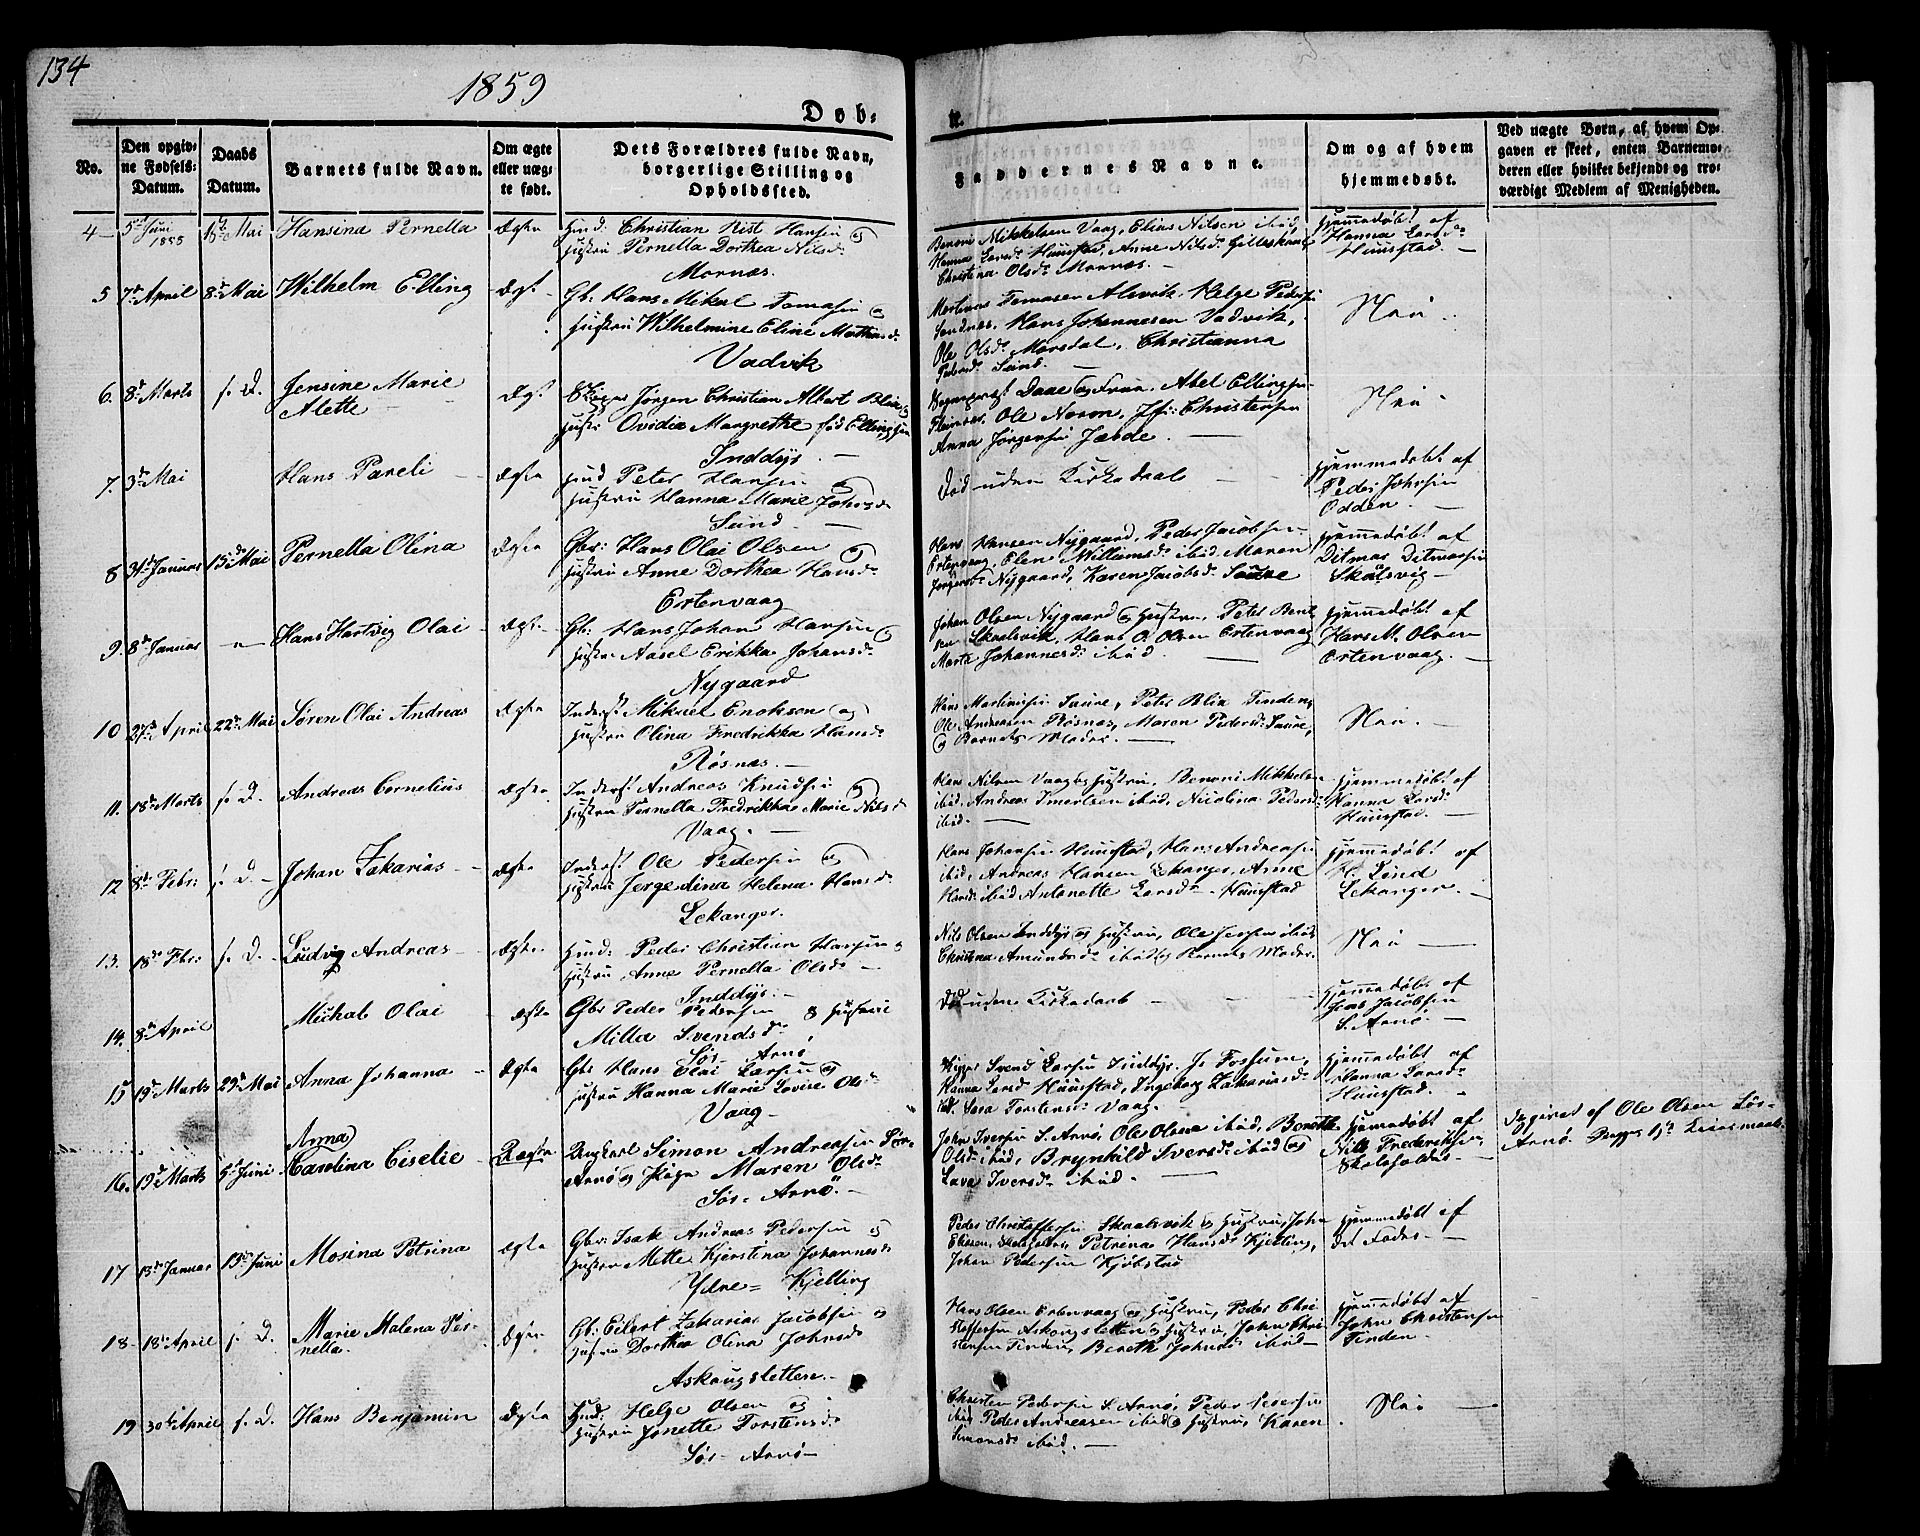 134
1859
Døb-
te.
No.
Den opgiv-
ne Fødsels-
Datum.
Daabs
Datum.
Barnets fulde Navn.
Om ægte
eller uæg-
te født.
Dets Forældres fulde Navn,
borgerlige Stilling og
Opholdssted.
Faddernes Navne.
Om og af hvem
hjemmedøbt.
Ved uægte Børn, af hvem Op-
gaven er skeet, enten Barnemo-
deren eller hvilket bekjendt og tro-
værdigt Medlem af Menigheden.
4 Hansina Pernella Ægte
Christian Rist Hansen og
Hustru Pernella Dorthea Nilsd.
Mornæs.
Benoni Mikkelsen Vaag, Elias Nilsen ibid,
Hanna Larsd. Huustad, Anne Nilsd.
Christina Olsd. Mornæs.
Hjemmedøbt af
Hanna Larsd.
Huustad.
5 7de April 8de Mai Wilhelm Elling Ægt
Gb: Hans Mikal Tomasen og
Hustru Wilhelmine Eline
Vadvik
Martinus Tomasen Alsvik, Helge Pedersen
Sandnæs, Hans Johannesen Vadvik,
Ole Olsd. Morsdal, Christianna
Pedersd. Sund.
Nei
6. 8de Marts s. D. Jensine Marie
Alette
Ægt
Jørgen Christian Albert Blix og
Hustr: Ovidia Margrethe fød Ellingsen
Inddyr.
Daae og Frue, Abel Ellingsen
Ole Norum, Jfr: Christensen
Anna Jørgensen
Nei
7. 3de Mai Hans Pareli Ægte
Huusmd Peter Hansen og
Hustru Hanna Marie Johnsd.
Sund.
Død uden Kirkedaab
Hjemmedøbt af
Peder Johnsen
Odden.
8 31te Januar 15de Mai Pernella Olina Ægte
Gbr: Hans Olai Olsen og
Hustru Anne Dorthea Hansd.
Ertenvaag
Hans Hansen Nygaard, Peder Jacobsen
Ertenvaag, Elen Williamsd. ibid, Maren
Jørgensd. Nygaard, Karen Jacobsd. Saure
Hjemmedøbt af
Ditmar Ditmarsen
Skålsvig
9. 8de Januar Hans Hartvig Olai Ægte
Gb: Hans Johan Hansen og
Hustru Aasel Erikka Johansd.
Nygaard
Johan Olsen Nygaard og Hustru, Peter Bent-
sen Skaalsvik, Hans O. Olsen Ertenvaag
Marta Johannesd. ibid.
Hjemmedøbt af
Hans M. Olsen
Ertenvaag.
10 27de April 22de Mai Søren Olai Andreas Ægte
Inderst Mikael Enoksen og
Hustru Olina Fredrikka Hansd.
Røsnæs.
Hans Martinusen Saure, Peter Blix Tinden,
Ole Andreasen Røsnæs, Maren Pedersd. Saure,
og Barnets Moder.
Nei.
11. 18de Marts s. D. Andreas Cornelius Ægte
Inderst Andreas Knudsen og
Hustru Pernella Fredrikka Marie Nilsd.
Vaag.
Hans Nilsen Vaag og Hustru, Benoni Mikkelsen
ibid, Andreas ibid, Nicolina Pedersd.
ibid.
Hjemmedøbt af
Hanna Larsd.
Huustad.
12 8de Febr: s. D. Johan Zakarias Ægte
Inderst Ole Pedersen og
Hustru Jørgedina Helena Hansd.
Lekanger.
Hans Johansen Huustad, Hans Andreasen
ibid, Andreas Hansen Lekanger, Anne
Hansd. ibid Antonette Larsd. Huustad
Hjemmedøbt af
H. Lund
Lekanger.
13. 18de Fbr: s. D. Ludvig Andreas Ægte
Huusmd: Peder Christian Hansen og
Hustru Anne Pernella Olsd.
Inddyr.
Nils Olsen Inddyr og Hustru, Ole Jensen ibid,
Christina Amundsd. ibid og Barnets Moder.
Nei
14. 8de April Michal Olai Ægte
Gbr Peder Pedersen & Hustru
Milla Svendsd.
Sør-Arnø
Død uden Kirkedaab
Hjemmedøbt af
Jacobsen
S. Arnø.
15 19de Marts 29de Mai Anna Johanna Ægte
Gbr Hans Olai Larsen og
Hustru Hanna Marie Lovise Olsd.
Vaag
Svend Larsen Inddyr, Js Fossum,
Hanna Larsd. Huustad, Ingeborg Zakariasd.
Sara Torstensd. Vaag.
Hjemmedøbt af
Hanna Larsd.
Huustad.
16. 19de Marts 5te Juni Anna
Carolina Ciselie Uægte
Ungkarl Simon Andreasen Sør-
Arnø og Pige Maren Olsd.
Sør-Arnø.
John Iversen S. Arnø, Ole Olsen ibid, Berette
Olsd. ibid, Brynhild Iversd. ibid og
Lava Iversd. ibid.
Hjemmedøbt af
Nils Frederiksen
Skoleholder
Opgivet af Ole Olsen Sør-
Arnø.
17 13de Januar 19de Juni Mosina Petrina Ægte
Gbr: Isak Andreas Pedersen og
Hustru Mette Kjerstina Johannesd.
Ydre-Kjelling
Peder Christoffersen Skaalsvik og Hustru, John
Eliasen, Petrina Hansd. Kjelling,
Johan Pedersen Kjøbstad
Hjemmedøbt af
det Fader
18 18de April s. D. Marie Malena Per-
nella.
Ægte
Gb: Eilert Zakarias Jacobsen og
Hustru Dorthea Olina Johnsd.
Askougsletten.
Hans Olsen Ertenvaag og Hustru, Peder Chri-
stoffersen Askougsletten og Hustru, John Chri-
stensen Tinden, Bereth Johnsd. ibid
Hjemmedøbt af
John Christensen
Tinden.
19 30te April s. D. Hans Benjamin Ægte
Huusmd: Helge Olsen og
Hustru Jonette Torstensd.
Sør-Arnø
Christen Pedersen S. Arnø, Peder Pedersen
ibid Peder Andreasen ibid og Hustru, Karen
Simonsd. ibid.
Nei